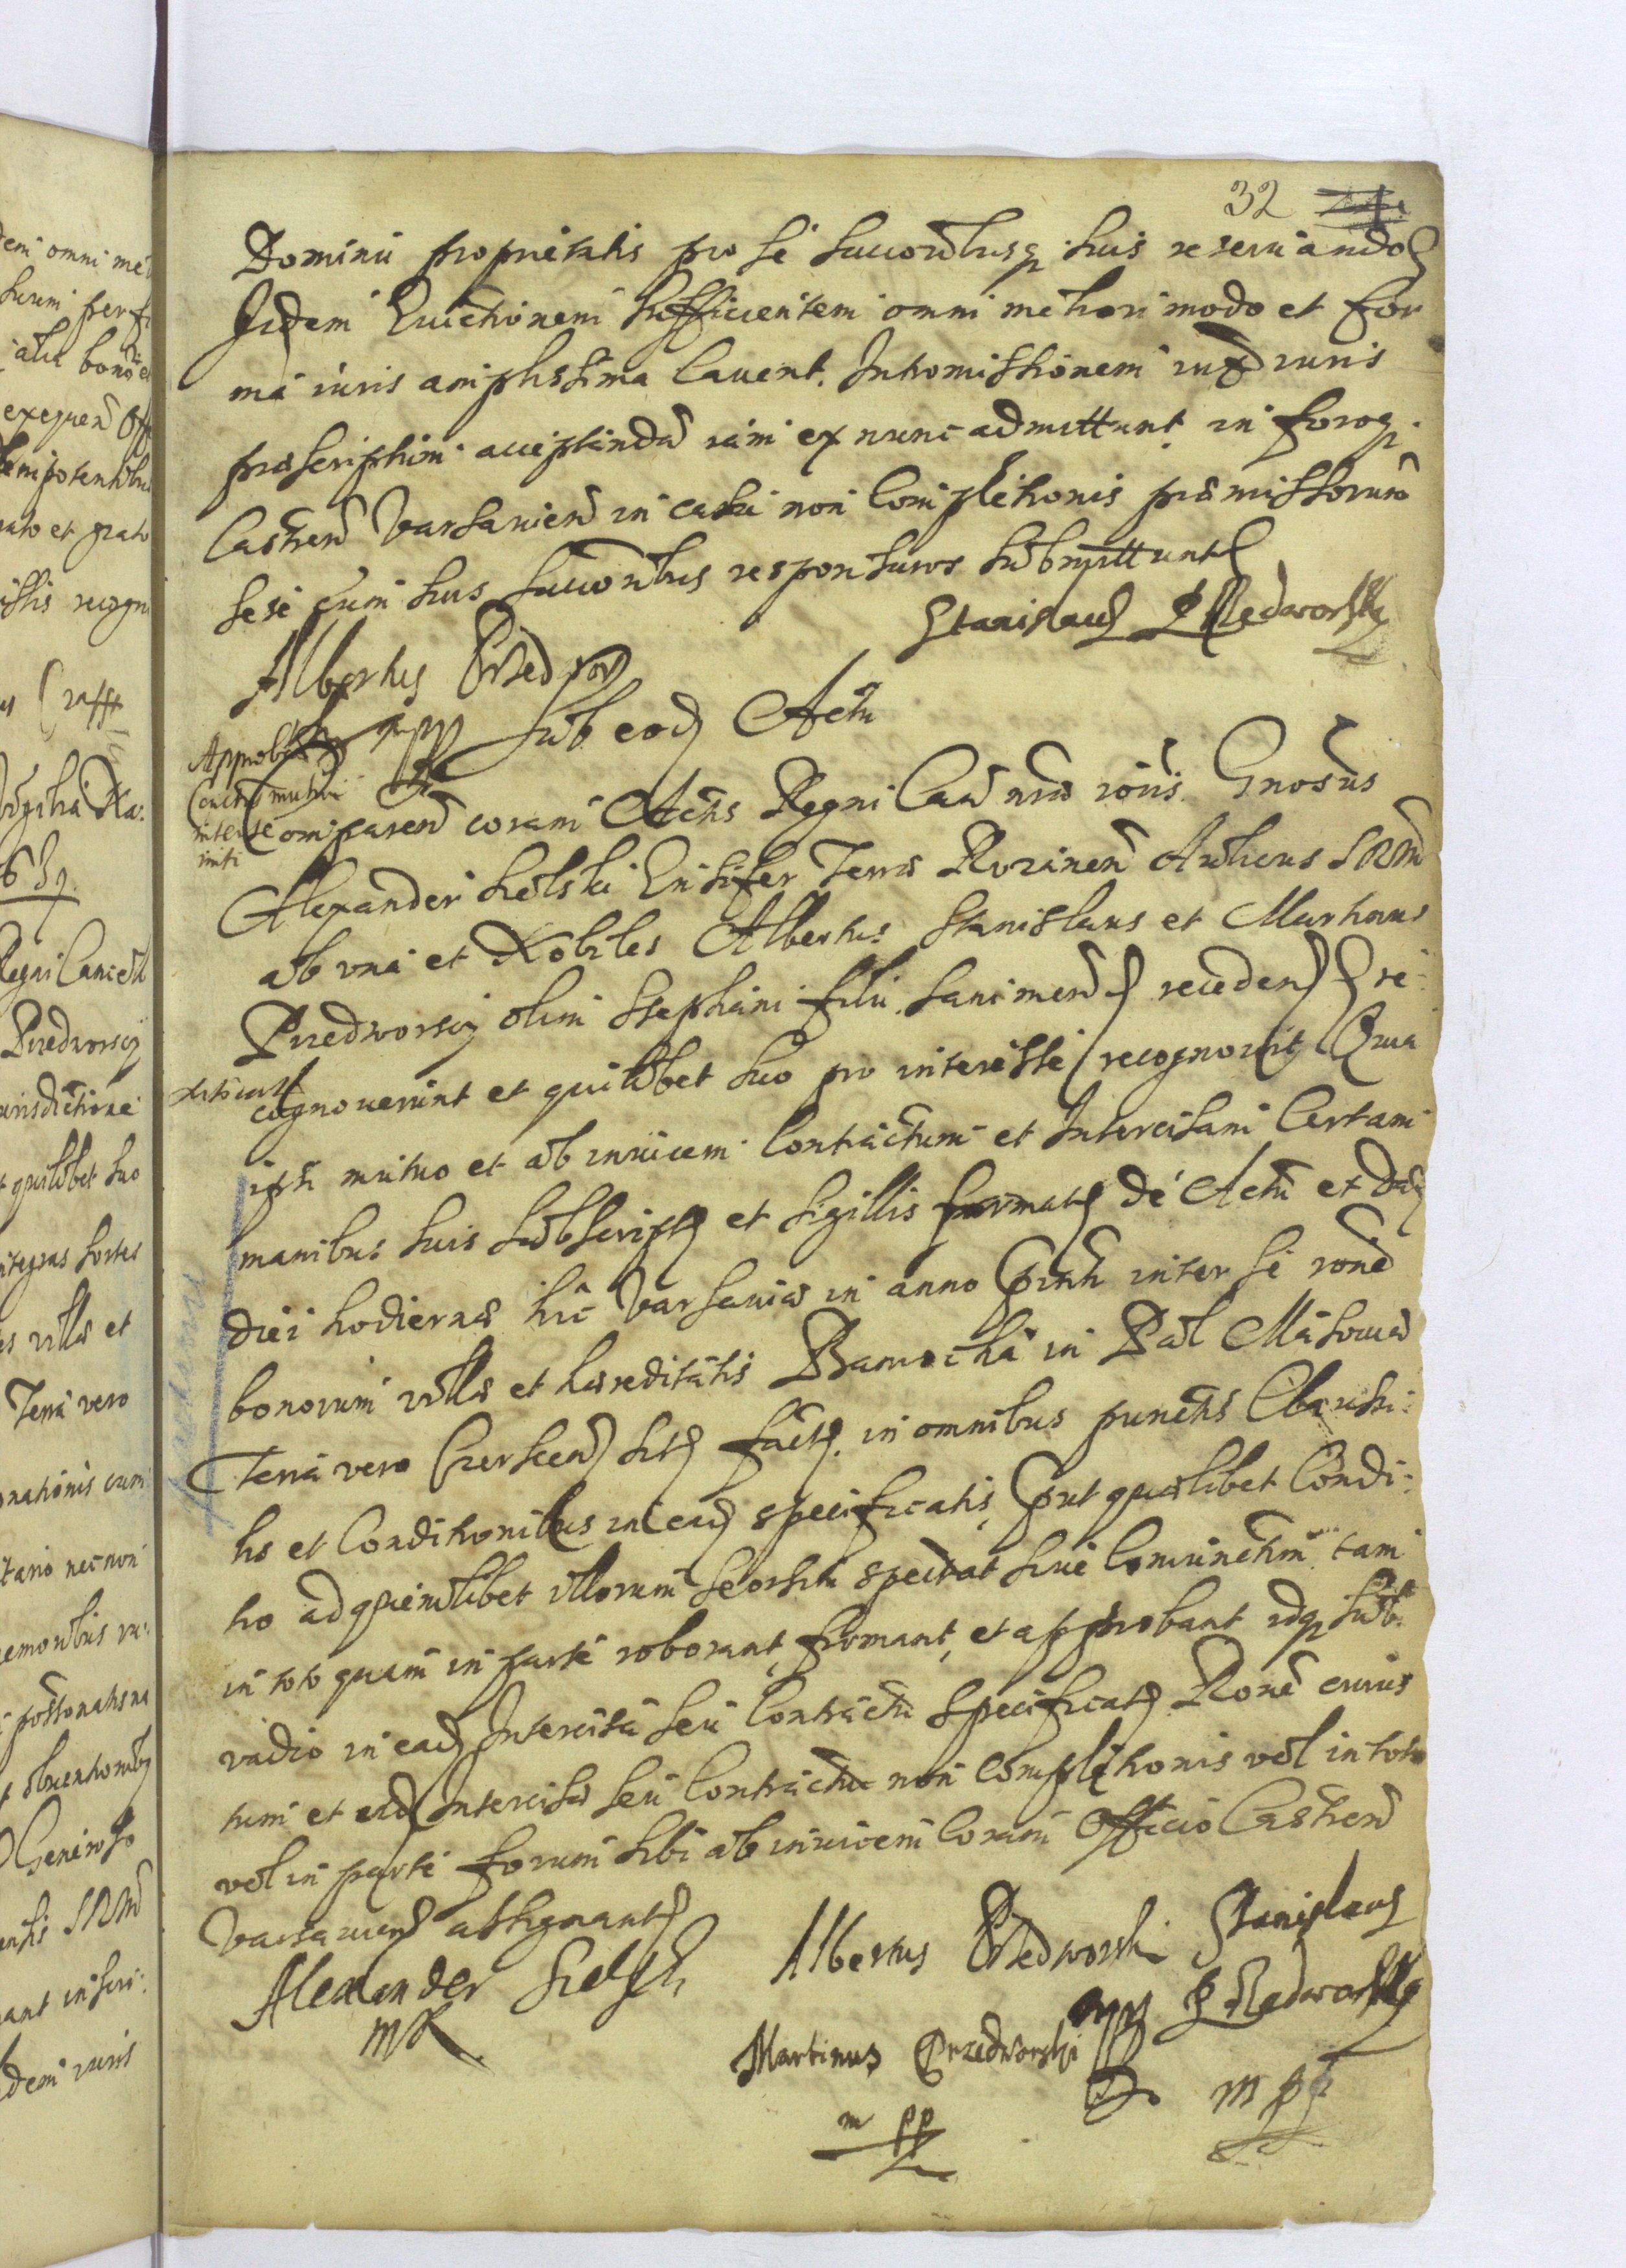 32
Dominii proprietatis pro se successoribusq suis reservando
Jidem Evictionem sufficientem omni meliori modo et for
ma iuris amplissima Cavent. Intromissionem iuxta iuris
praescriptum accipiendam iam ex nunc admittunt, in foroq
Castren Varsavien in casu non Completionis praemissorum
sese cum suis successoribus responsuros submittunt
Stanislaus Przedworsky
Albertus Przedwor
mpp
Sub eod Actu
Approb
Contractus mutui
inter se
initi
Comparen coram Actis Regni Can
Generosus
Alexander Sielski Ensifer Terrae Rozanen Aulicus SRM
ab una et Nobiles Albertus Stanislaus et Martinus
Przedworscy olim Stephani filii. sani men receden re-
cognoverunt et quilibet suo pro interesse recognovit Quia
ipsi mutuo et ab invicem Contractum et Intercisam Certam
manibus suis subscript et sigillis firmat de Actu et dat
diei hodiernae hic Varsaviae in anno praesenti inter se rone
bonorum villae et haereditatis in Pal Masoviae
Terra vero Czerscen sit fact. in omnibus punctis Clausu-
lis et Conditionibus in ead specificatis, prout quaelibet Condi-
tio ad quemlibet illorum seorsim spectat sive Coniunctim tam
in toto quam in parte roborant, firmant, et approbant idq sub
vadio in ead Intercisa seu Contractu specificat Rone cuius
tum et eid Intercisae seu Contractui non Completionis vel in toto
vel in parte forum sibi ab invicem Coram Officio Castren
Varsavien assignant
Alexander Sielski
mp
Albertus Przedworski
mpp
Stanislaus
Przedworsky
mpp
Martinus Przedworski
mpp